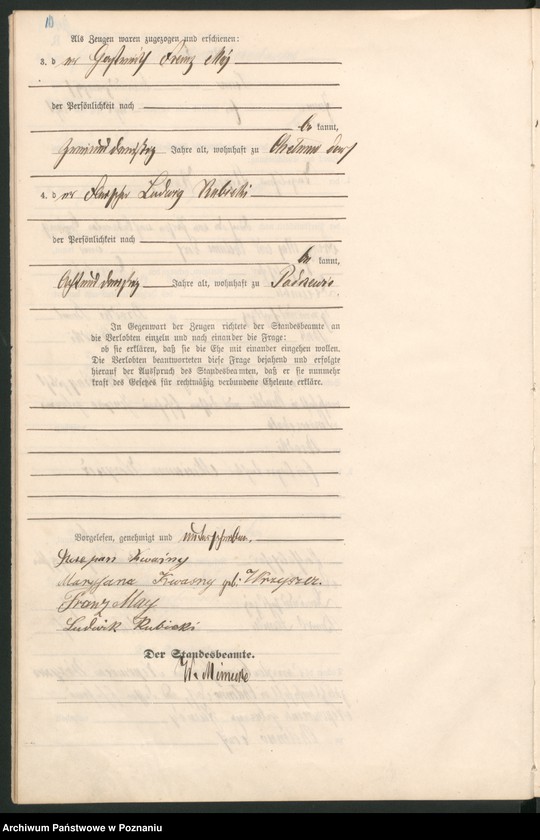 10
Als Zeugen waren zugezogen und erschienen:
3. d er Gastwirth Franz May
der Persönlichkeit nach
be kannt,
Zweiunddreißig Jahre alt, wohnhaft zu
4. d er Ludwig Rubicki
der Persönlichkeit nach
be kannt,
Achtunddreißig Jahre alt, wohnhaft zu
In Gegenwart der Zeugen richtete der Standesbeamte an
die Verlobten einzeln und nach einander die Frage:
ob sie erklären, daß sie die Ehe mit einander eingehen wollen.
Die Verlobten beantworteten diese Frage bejahend und erfolgte
hierauf der Ausspruch des Standesbeamten, daß er sie nunmehr
kraft des Gesetzes für rechtmäßig verbundene Eheleute erkläre.
Vorgelesen, genehmigt und unterschrieben.
Kwaśny
Maryjana Kwasny geb.
Franz May
Ludwik Rubicki
Der Standesbeamte.
Archiwum Państwowe w Poznaniu